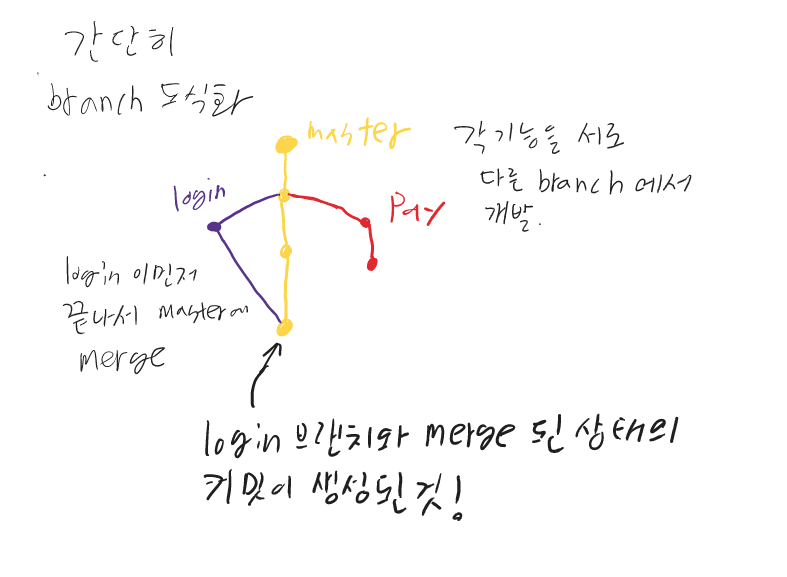 간단히
branch 도식화
master
각 기능을 서로
다른 branch에서
개발.
login
Pay
login이 먼저
끝나서 master에
merge
login 브랜치와 merge 된 상태의
커밋이 생성된 것!